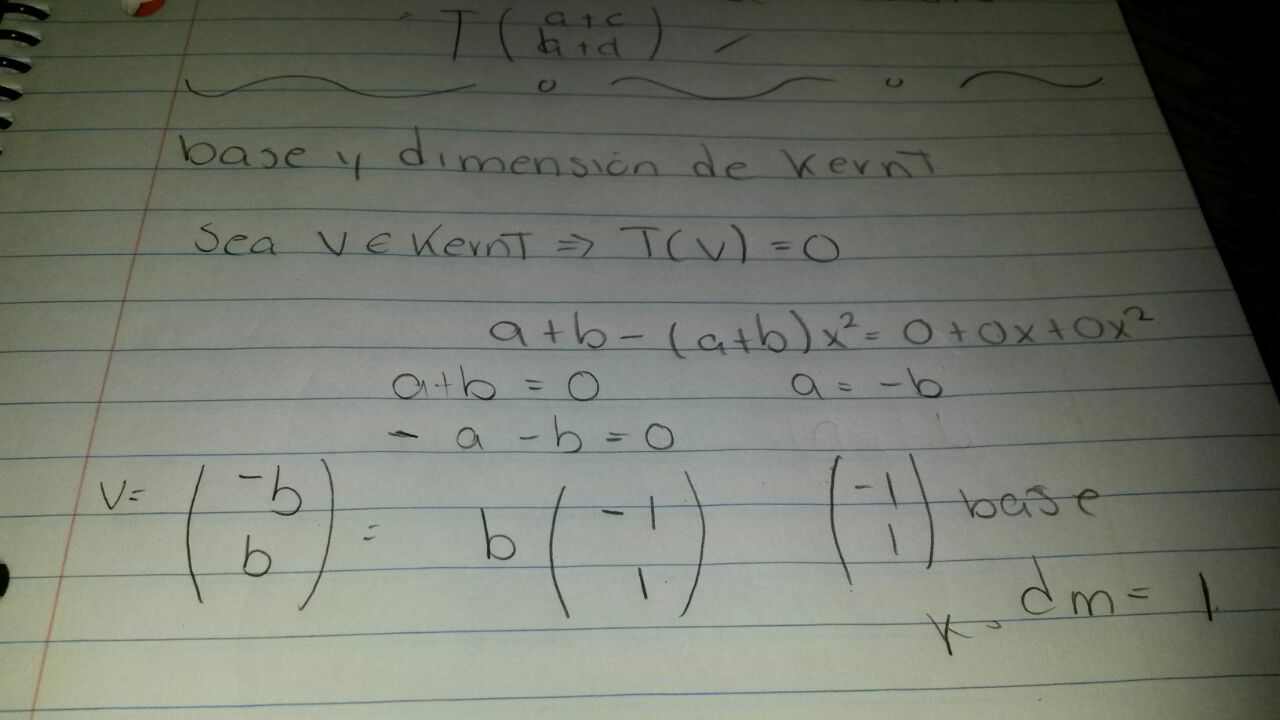 = T(a+c b+d)
base y dimensión de KernT
Sea V ∈ KernT ⇒ T(V) = 0
a+b-(a+b)x² = 0+0x+0x²
a+b = 0 a = -b
- a - b = 0
V= (-b b) = b (-1 1) (-1 1) base
dm = 1